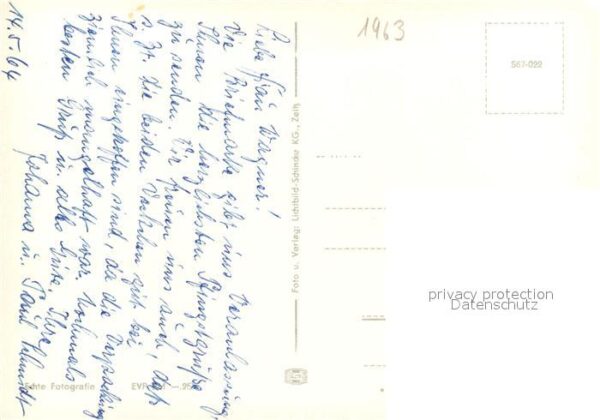 Liebe Frau Wagner!
Die Briefmarke gibt uns Veranlassung,
Ihnen die herzlichsten Pfingstgrüße
zu senden. Wir freuen uns auch, daß
s. Zt. die beiden gut bei
Ihnen eingetroffen sind, da die Verpackung
ziemlich mangelhaft war. Nochmals
besten Gruß u. alles Gute. Ihre
Johanna u. Paul Schmidt
14.5.64
1963
S67-022
Foto u. Verlag: Lichtbild-Schincke KG., Zeitz
Echte Fotografie
privacy protection
Datenschutz